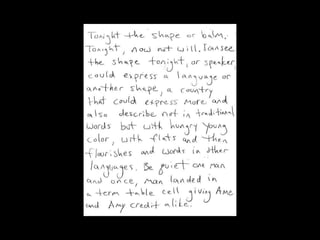 Tonight the shape or balm.
Tonight, now not will, I can see
the shape tonight, or speaker
could express a language or
another shape, a country
that could express more and
also describe not in traditional
words but with hungry young
color, with flats and then
flourishes and words in other
languages. Be quiet one man
and once, man landed in
a term table cell giving Ame
and Amy credit alike.